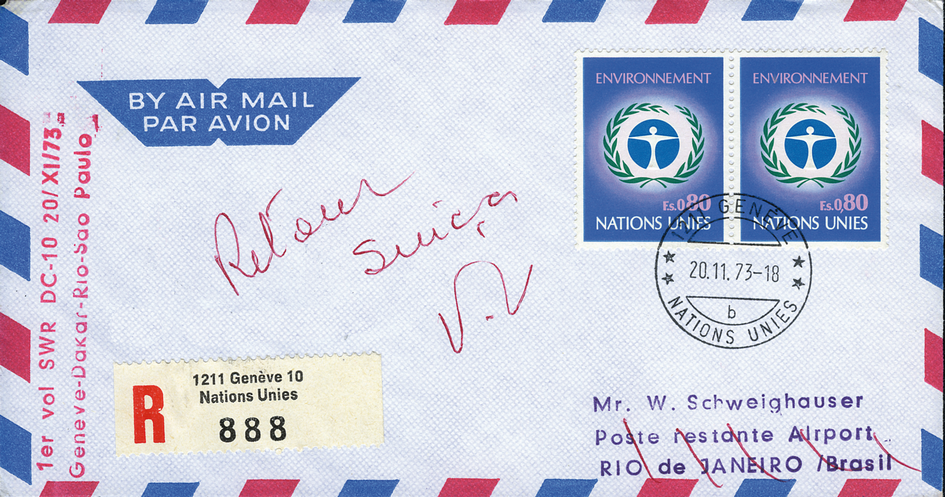 BY AIR MAIL
PAR AVION
1er vol SWR DC-10 20/XI/73
Genève-Dakar-Rio-Sao Paulo
ENVIRONNEMENT
F.s.0,80
NATIONS UNIES
ENVIRONNEMENT
F.s.0,80
NATIONS UNIES
GENÈVE
20.11.73-18
b
NATIONS UNIES
Retour
Suiça
R
1211 Genève 10
Nations Unies
888
Mr. W. Schweighauser
Poste restante Airport
RIO de JANEIRO /Brasil